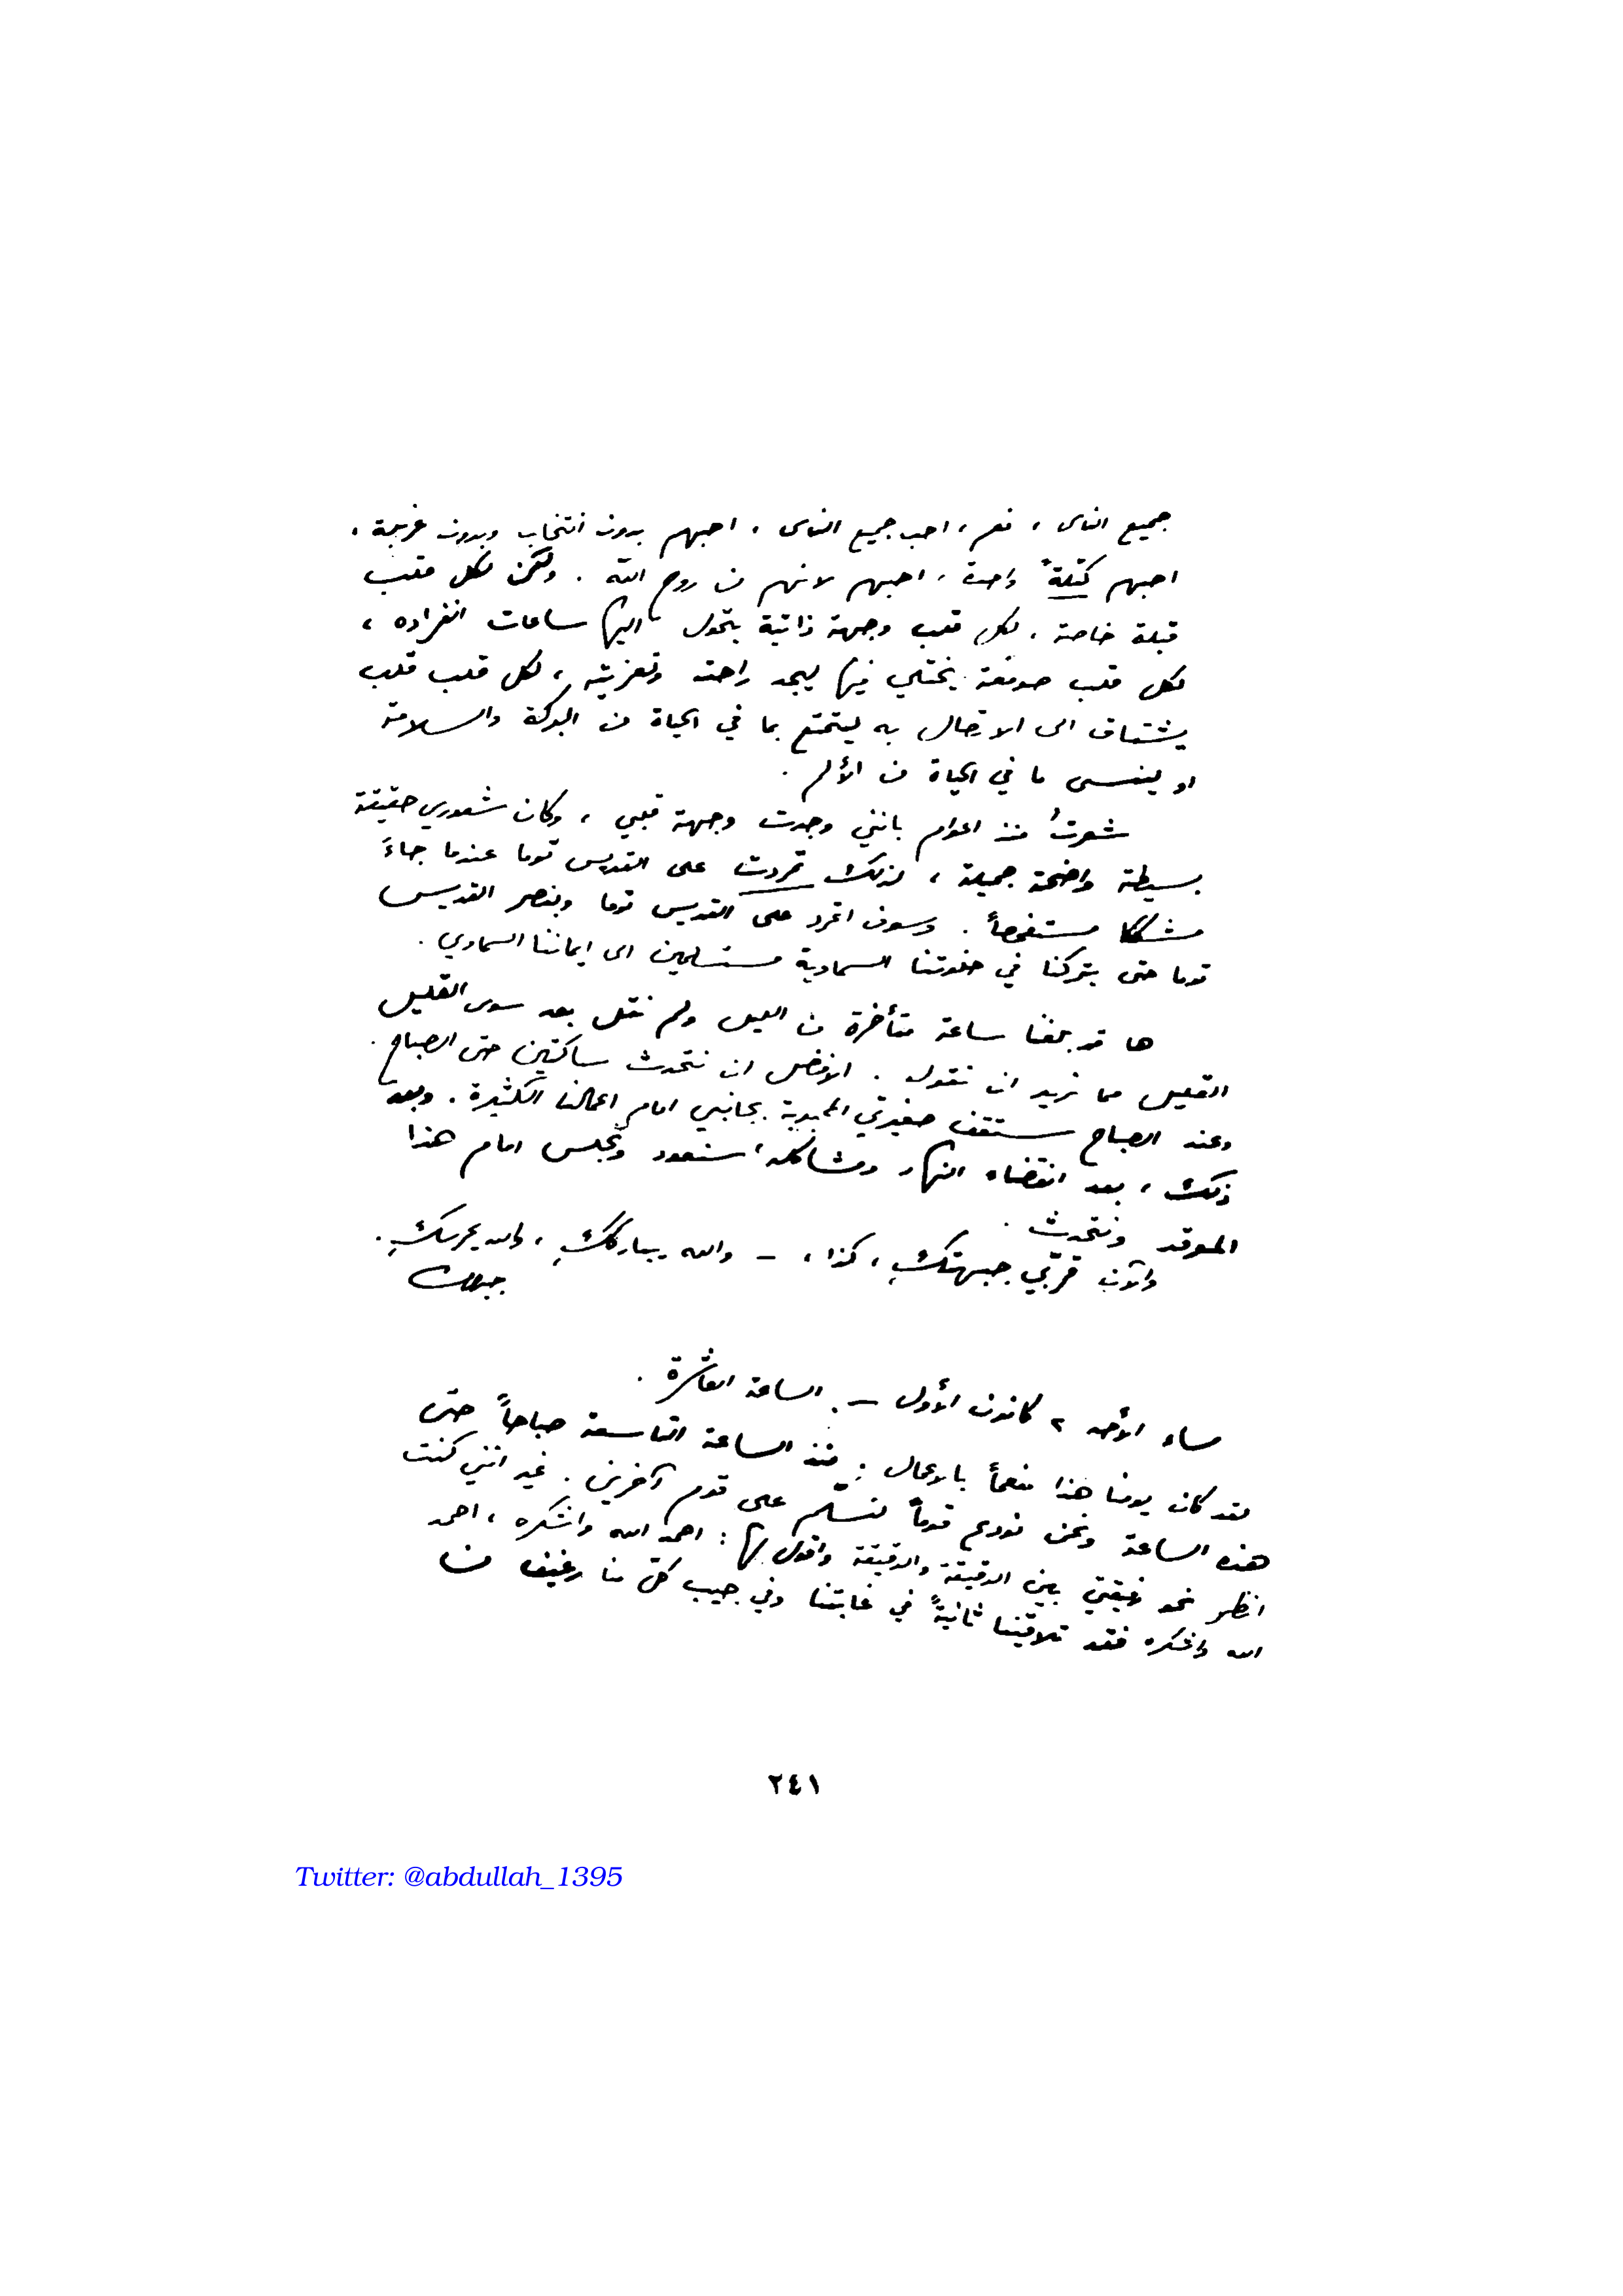 جميع الناس ، نعم ، احب جميع الناس . احبهم بدون انتخاب وبدون غربلة .
احبهم كتلةً واحدة ، احبهم لانهم من روح الله . ولكن لكل قلب
قبلة خاصة . لكل قلب وجهة ذاتية يتحول اليها ساعات انفراده ،
لكل قلب صومعة يختلي فيها ليجد راحته وتعزيته ، لكل قلب قلب
يشتاق الى الاتصال به ليتمتع بما في الحياة من البركة والسلامة
او لينسى ما في الحياة من الألم .
شعرتُ منذ اعوام بانني وجدت وجهة قلبي ، وكان شعوري حقيقة
بسيطة واضحة جميلة ، لذلك تمردت على القديس توما عندما جاءَ
مشككا مستفحصاً . وسوف اتمرد على القديس توما وبنصر القديس
توما حتى يتركنا في خلوتنا السماوية مستسلمين الى ايماننا السماوي .
ها قد بلغنا ساعة متأخرة من الليل ولم نقل بعد سوى القليل
القليل مما نريد ان نقول . الافضل ان نتحدث ساكتين حتى الصباح .
وعند الصباح ستقف صغيرتي المحبوبة بجانبي امام اعمالنا الكثيرة . وبعد
ذلك ، بعد انقضاء النهار ومشاكله ، سنعود ونجلس امام هذا
الموقد ونتحدث .
والآن قرّبي جبهتكِ ، كذا ، – والله يباركك ِ ، والله يحرسكِ .
جبران
مساء الأحد ٢ كانون الأول – الساعة العاشرة .
لقد كان يومنا هذا مفعماً بالاعمال : منذ الساعة التاسعة صباحاً حتى
هذه الساعة ونحن نودع قوماً لنسلّم على قوم آخرين . غير انني كنت
انظر نحو رفيقتي بين الدقيقة والدقيقة واقول لها : احمد الله واشكره ، احمد
الله واشكره فقد تلاقينا ثانيةً في غابتنا وفي جيب كلّ منا رغيف من
٢٤١
Twitter: @abdullah_1395